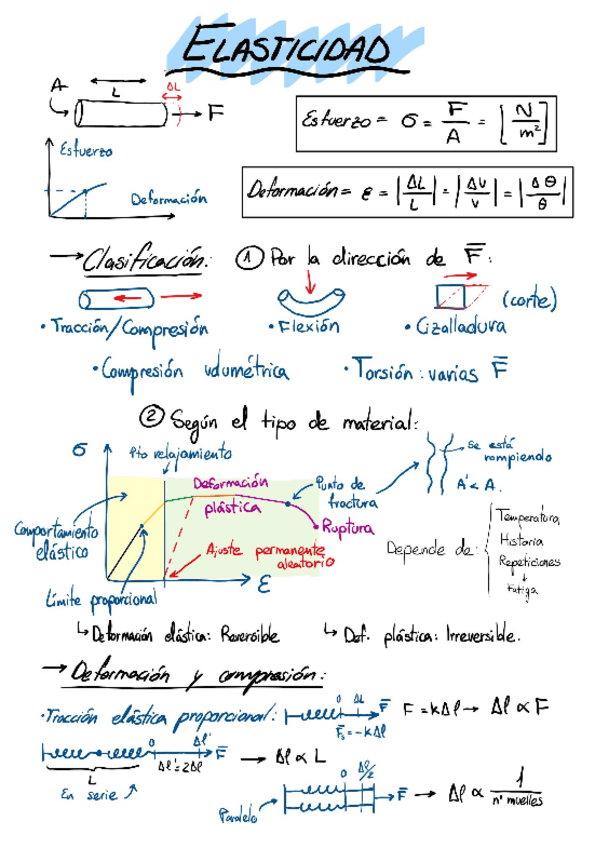 ELASTICIDAD
A
L
ΔL
F
Esfuerzo = σ = F/A = [N/m²]
Esfuerzo
Deformación
Deformación = ε = |ΔL/L| = |ΔV/V| = |Δθ/θ|
→ Clasificación: ① Por la dirección de F̅:
(corte)
• Tracción/Compresión
• Flexión
• Cizalladura
• Compresión volumétrica
• Torsión: varias F̅
② Según el tipo de material:
σ
Pto relajamiento
Se está rompiendo
A' < A
Deformación plástica
Punto de fractura
Ruptura
Comportamiento elástico
Ajuste permanente aleatorio
ε
Límite proporcional
Depende de:
Temperatura
Historia
Repeticiones
↓
Fatiga
↳ Deformación elástica: Reversible
↳ Def. plástica: Irreversible.
→ Deformación y compresión:
• Tracción elástica proporcional:
0 ΔL F̅
F̅s = -kΔl
F = kΔl → Δl ∝ F
0 Δl' F̅
Δl' = 2Δl
→ Δl ∝ L
L
En serie
0 Δl/2
F̅
Paralelo
→ Δl ∝ 1/nº muelles